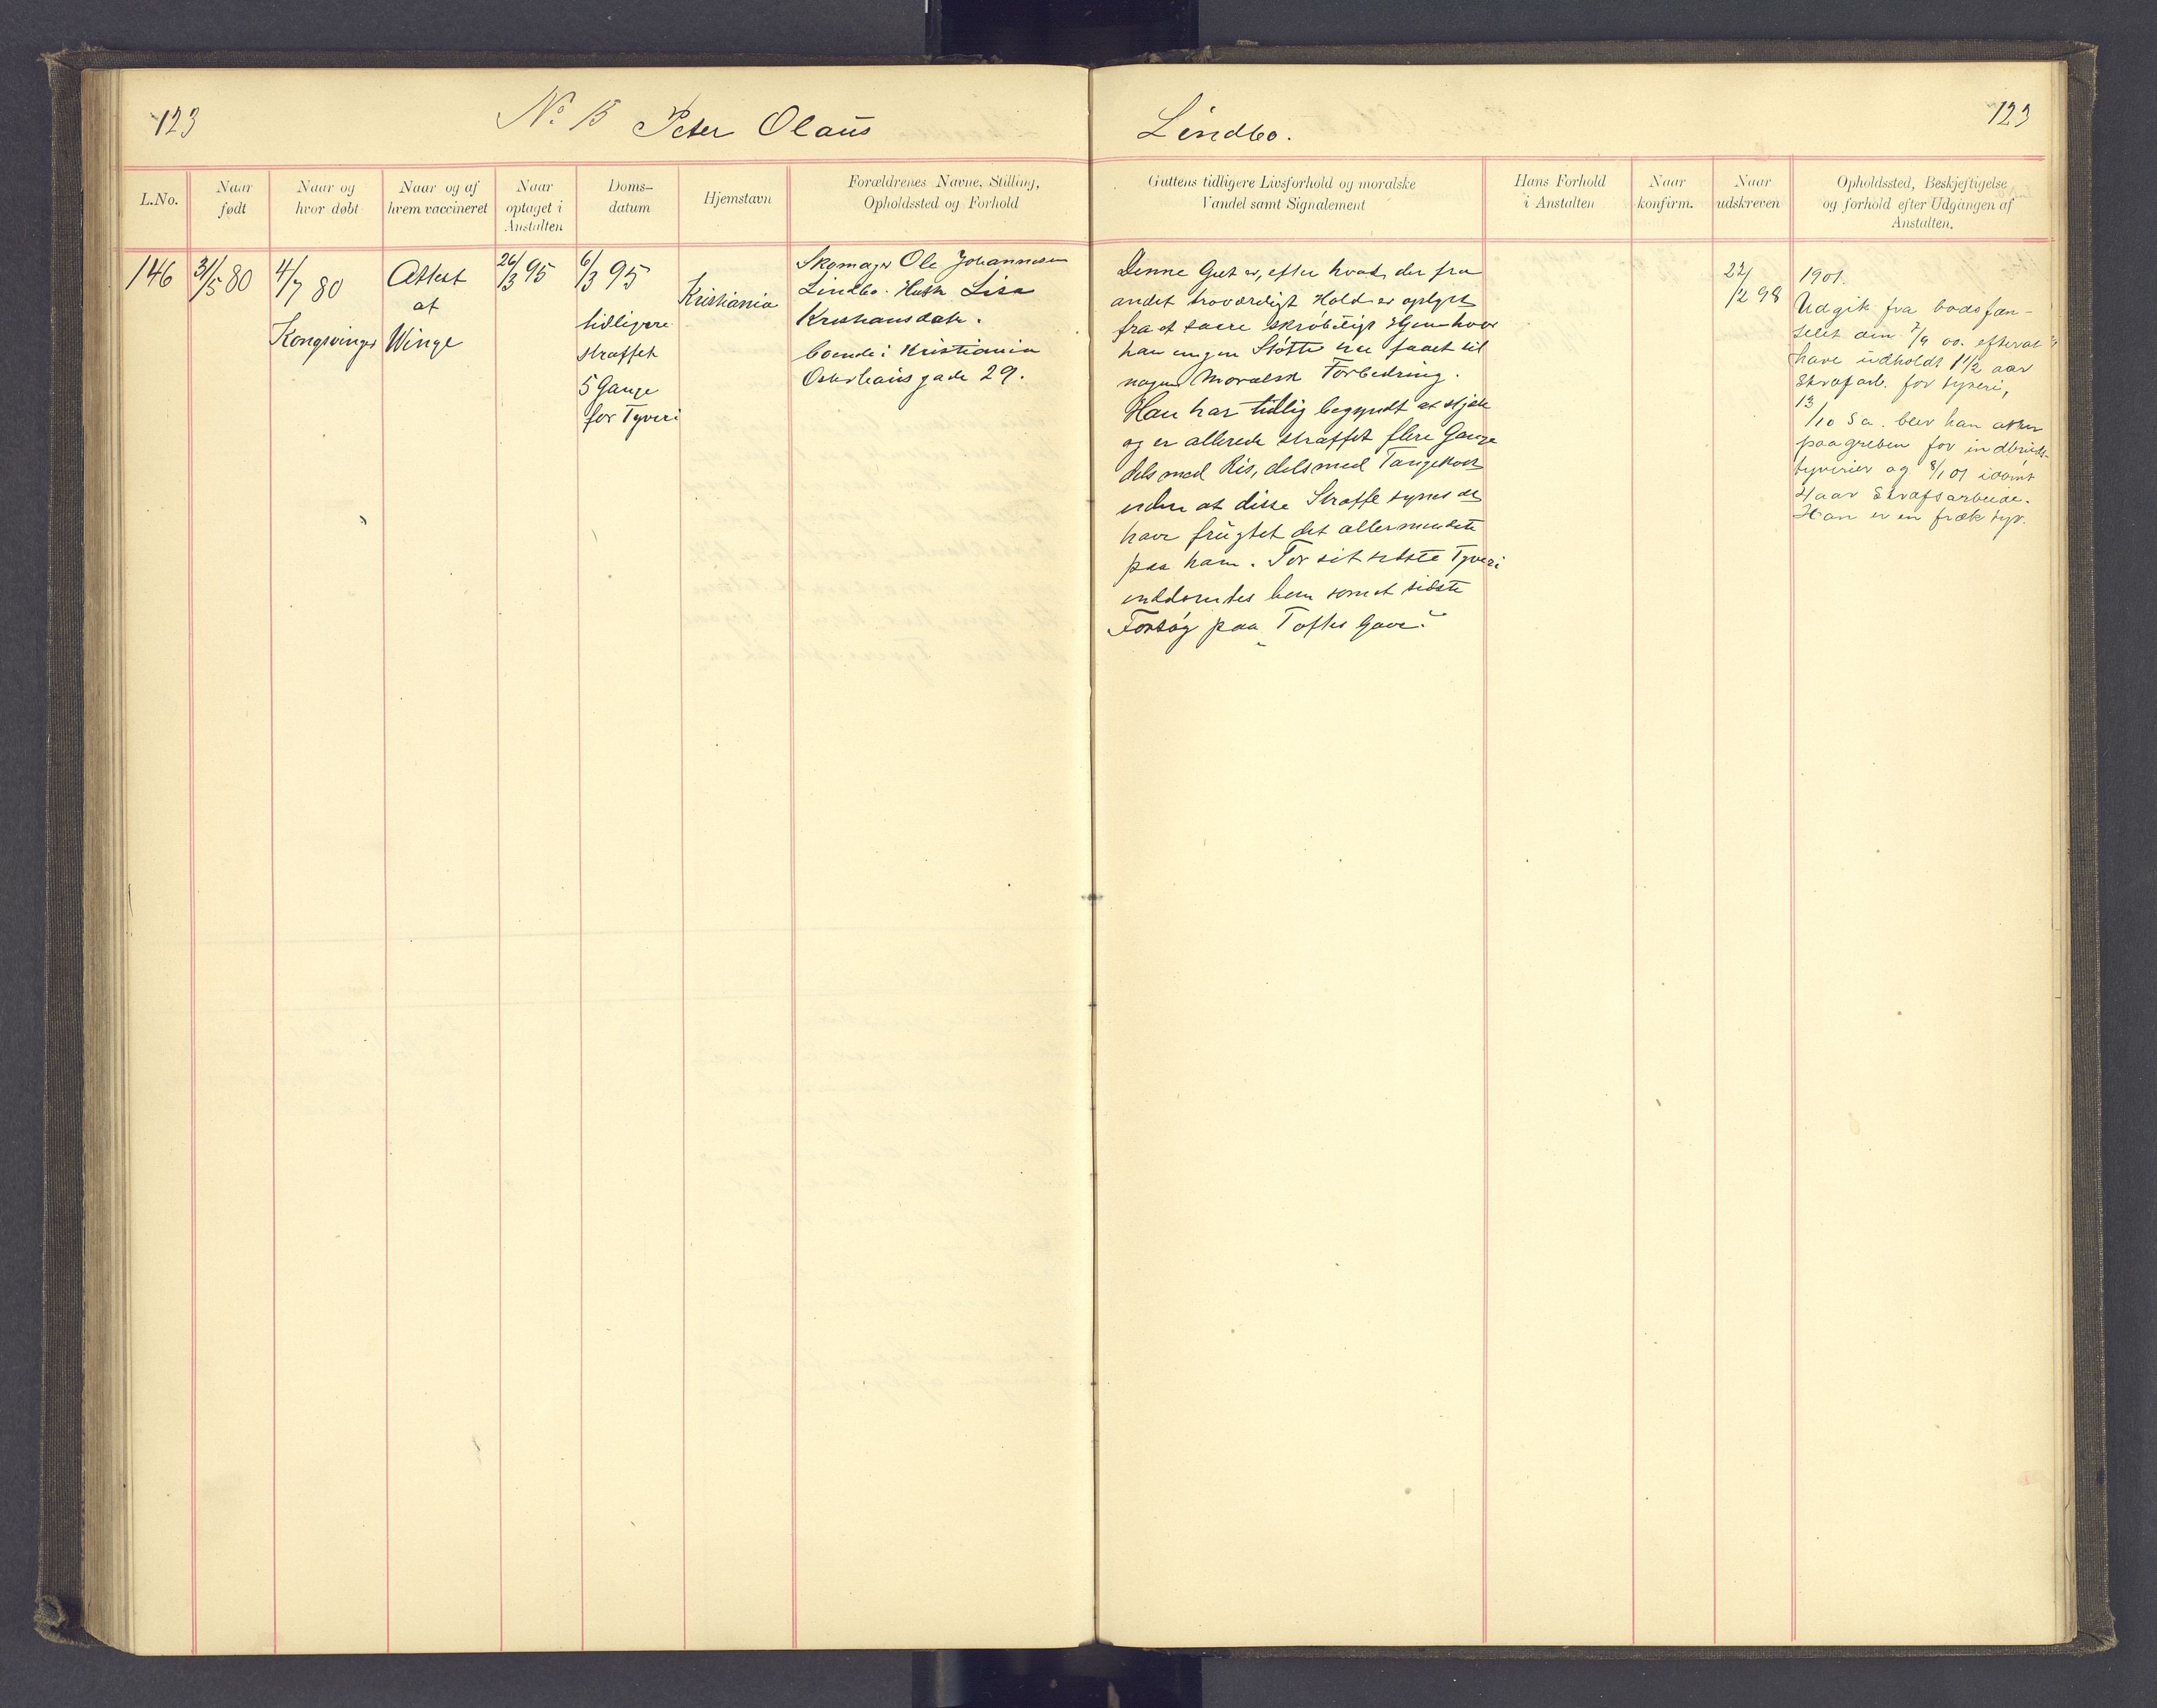 123
No. 15 Peter Olaus
Lindbo.
123
L.No.
Naar
født
Naar og
hvor døbt
Naar og af
hvem vaccineret
Naar
optaget i
Anstalten
Doms-
datum
Hjemstavn
Forældrenes Navne, Stilling,
Opholdssted og Forhold
Guttens tidligere Livsforhold og moralske
Vandel samt Signalement
Hans Forhold
i Anstalten
Naar
konfirm.
Naar
udskreven
Opholdssted, Beskjeftigelse
og forhold efter Udgangen af
Anstalten.
146
31/5 80
4/7 80
Kongsvinger
Attest
af
Winge
26/3 95
6/3 95
tidligere
straffet
5 Gange
for Tyveri
Kristiania
Skomager Ole Johannesen
Lindbo. Lisa
Kristiansdatr.
boende i Kristiania
Osterhausgade 29.
Denne Gut er, efter hvad der fra
andet troværdigt Hold er oplyst
fra et svære skrøbeligt Hjem hvor
han ingen Støtte har faaet til
nogen Moralsk Forbedring.
Han har tidlig begyndt at stjæle
og er allerede straffet flere Gange
dels med Ris, dels med Fangekost
uden at disse Straffe synes at
have frugtet det allermindste
paa ham. For sit sidste Tyveri
inddømtes han som et sidste
Forsøg paa "Toftes Gave."
22/2 98
1901.
Udgik fra bodsfæn-
selet den 7/9 00. efterat
have udholdt 1 1/2 aar
Strafarb. for tyveri,
13/10 s a. blev han atter
paagreben for indbruds-
tyverier og 8/1 01 idømt
4 aar Strafsarbeide.
Han er en fræk tyv.